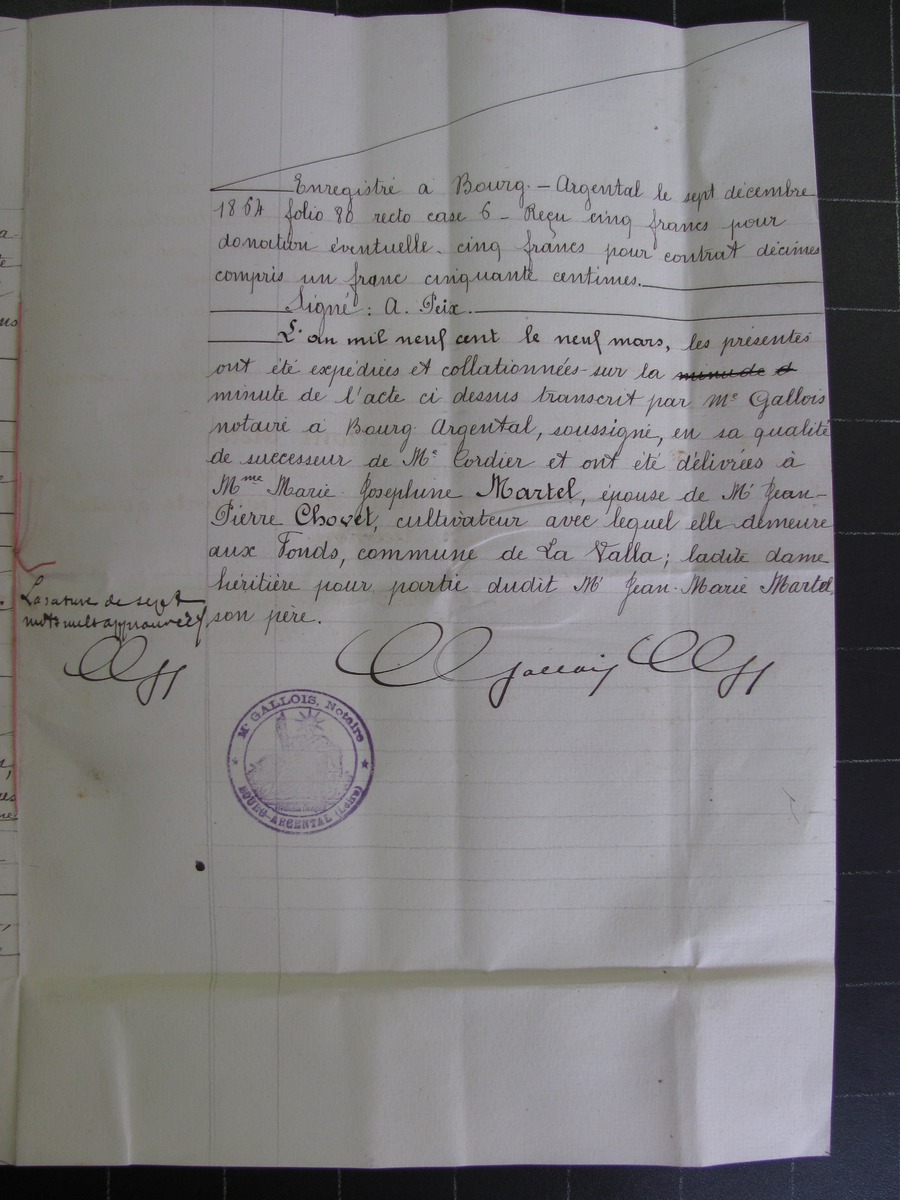 Enregistré à Bourg-Argental le sept décembre
1864 folio 80 recto case 6 - Reçu cinq francs pour
donation éventuelle. cinq francs pour contrat décimes
compris un franc cinquante centimes.
Signé : A. Peix.
L'an mil neuf cent le neuf mars, les présentes
ont été expédiées et collationnées sur la
minute de l'acte ci dessus transcrit par Me Gallois
notaire à Bourg Argental, soussigné, en sa qualité
de successeur de Me Cordier et ont été délivrées à
Mme Marie Josephine Martel, épouse de Mr Jean-
Pierre Chovet, cultivateur avec lequel elle demeure
aux Fonds, commune de La Valla ; ladite dame
héritière pour partie dudit Mr Jean-Marie Martel,
son père.
La rature de sept
mots nuls approuvée
Gallois
Me GALLOIS, Notaire
BOURG-ARGENTAL (Loire)